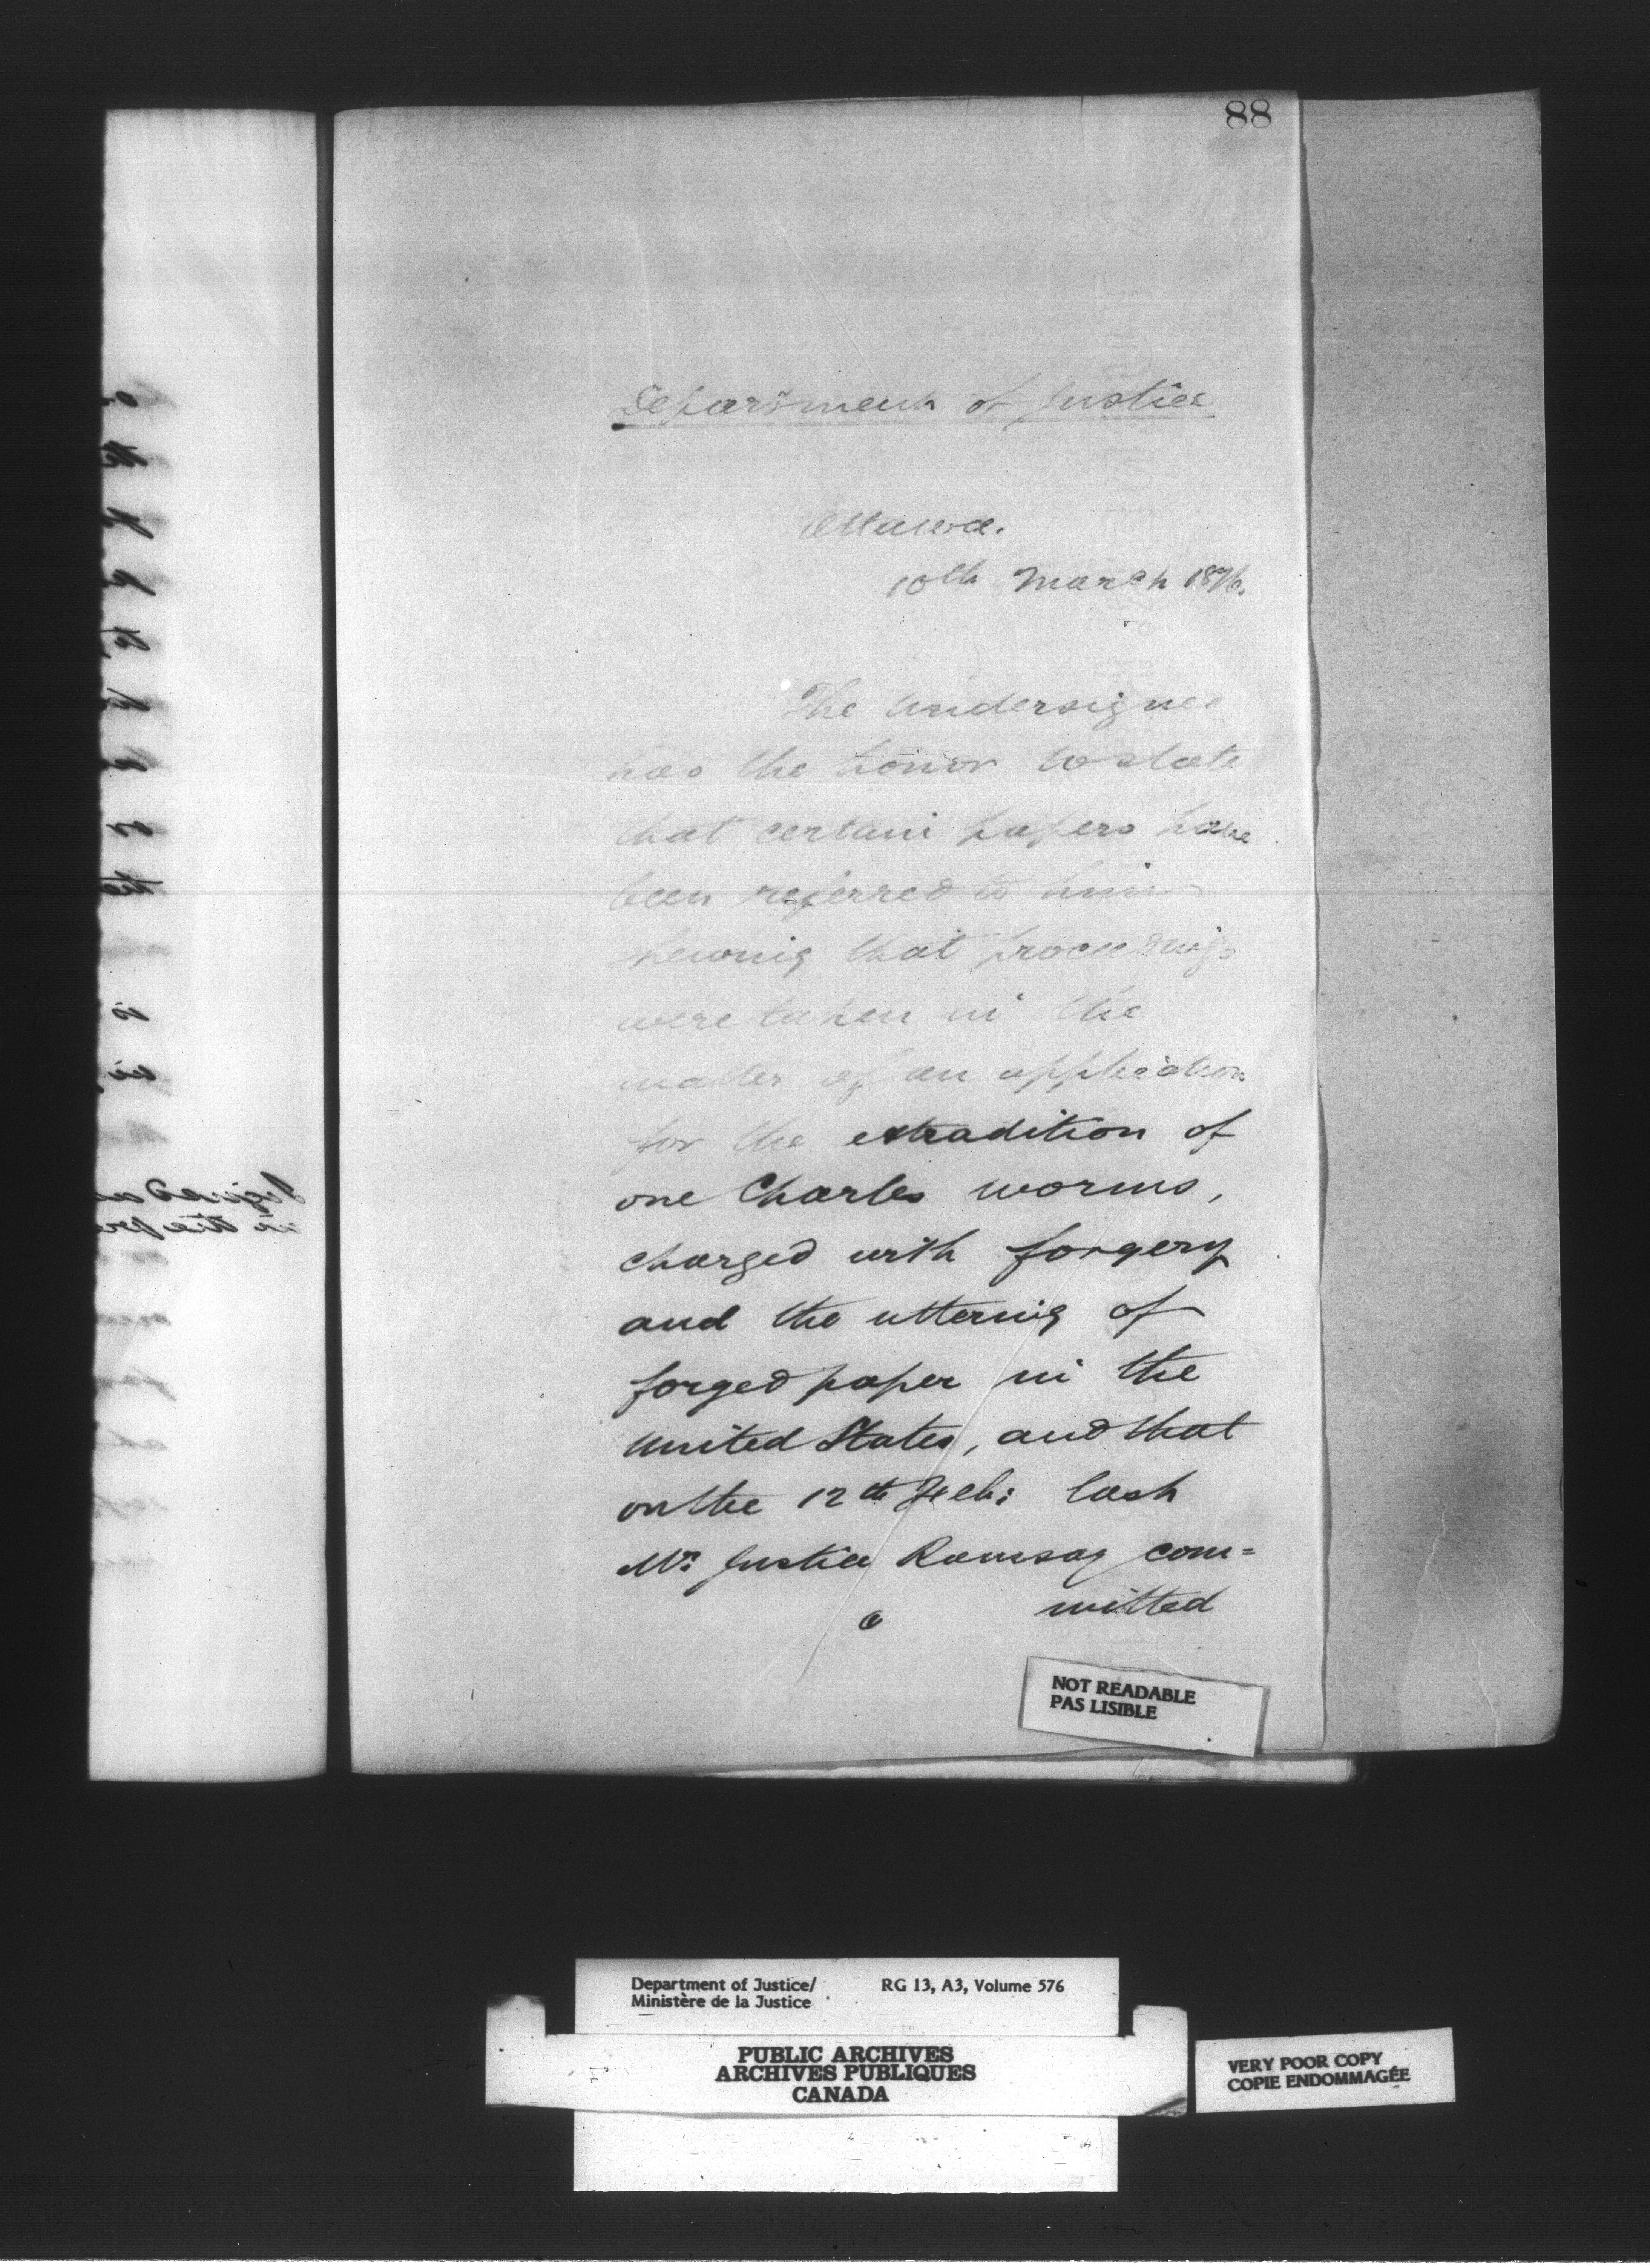 88
Department of Justice
Ottawa.
10th March 1876.
The Undersigned
has the honor to state
that certain papers have
been referred to him
shewing that proceedings
were taken in the
matter of an application
for the extradition of
one Charles Worms,
charged with forgery
and the uttering of
forged paper in the
United States, and that
on the 12th Feb: last
Mr. Justice Ramsay com=
mitted
NOT READABLE
PAS LISIBLE
Department of Justice/ RG 13, A3, Volume 576
Ministère de la Justice
PUBLIC ARCHIVES
ARCHIVES PUBLIQUES
CANADA
VERY POOR COPY
COPIE ENDOMMAGÉE